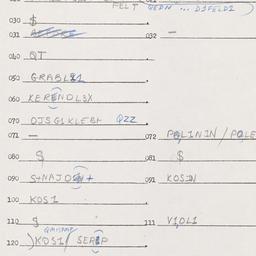 FELT GEDN ... DIFELDI )
030 $
031 032 —
040 QT
050 GRABL21
060 KERENOL3X
070 OJSG1KLEB+ QZZ
071 — 072 POLININ / POLE
080 $ 081 $
090 S+NAJO + 091 KOSIN
100 KOS1
110 $ 111 VIOLI
120 )KOS1/ SER P